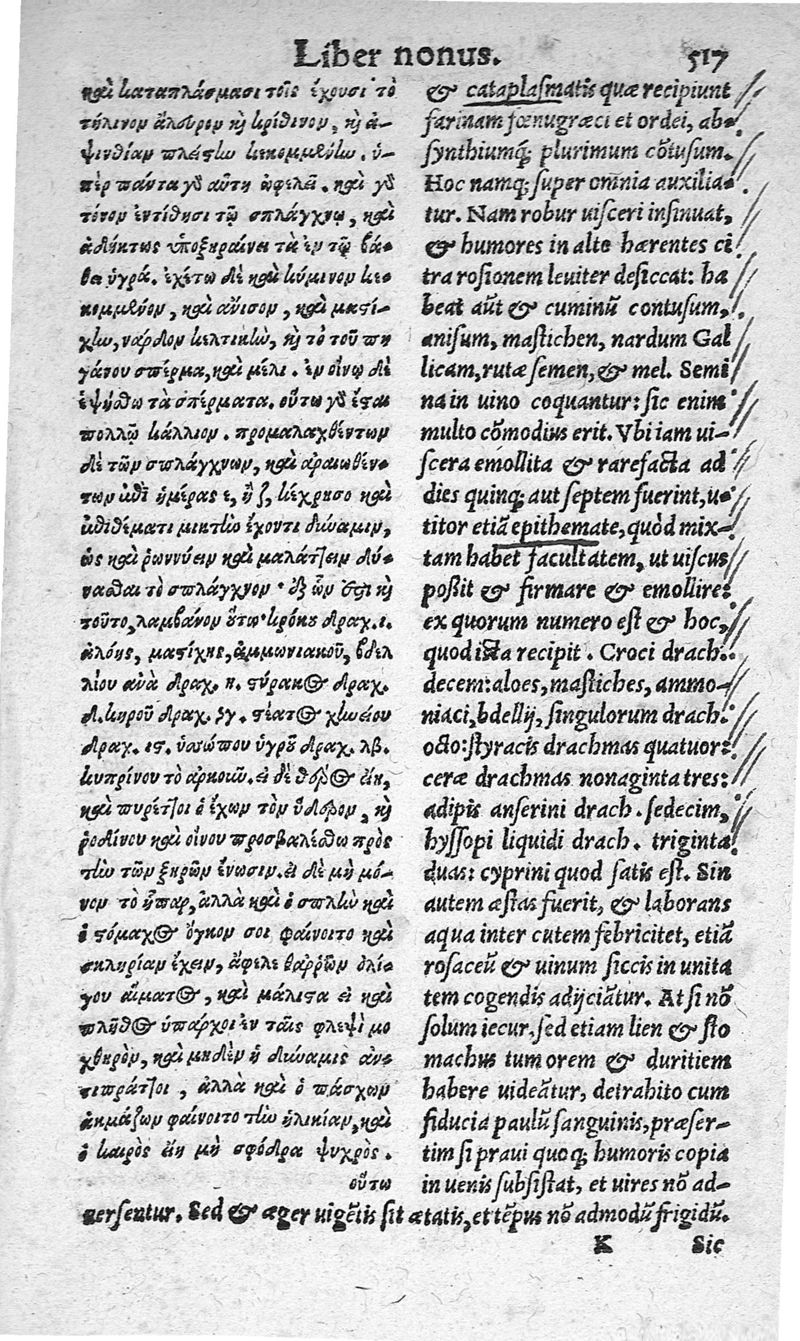 Liber nonus. 517
καὶ καταπλάσμασι τοῖς ἔχουσι τὸ
τήλινον ἄλευρον κὴ κρίθινον, κὴ ἀ-
ψινθίαν πλείστω κεκομμένω. ὑ-
πὲρ πάντα γὸ αὕτη ὠφελεῖ. καὶ γὸ
τόνον ἐντίθησι τῷ σπλάγχνω, καὶ
ἀδήκτως ὑποξηραίνει τὰ ἐν τῷ βά-
θει ὑγρά. ἐχέτω δὲ καὶ κύμινον κε-
κομμένον, καὶ ἄνισον, καὶ μαστί-
χlω, νάρδον κελτικlὼ, κὴ τὸ τοῦ πη
γάνου σπέρμα, καὶ μέλι. ἐν οἴνῳ δὲ
ἑψήσθω τὰ σπέρματα. οὕτω γὸ ἔσται
πολλῷ κάλλιον. προμαλαχθέντων
δὲ τῶν σπλάγχνων, καὶ ἀραιωθέν-
των ἐπὶ ἡμέρας ε, ἢ ζ, κέχρησο καὶ
ἐπιθέματι μικτlὼ ἔχοντι δύναμιν,
ὡς καὶ ῥωννύειν καὶ μαλάττειν δύ-
νασθαι τὸ σπλάγχνον. ἐξ ὧν ἐστι κὴ
τοῦτο, λαμβάνον οὕτω. κρόκου δραχ. ι.
ἀλόης, μαστίχης, ἀμμωνιακοῦ, βδελ
λίου ἀνὰ δραχ. η. στύρακος δραχ.
δ. κηροῦ δραχ. ϟγ. στέατος χlωείου
δραχ. ις. ὑσώπου ὑγροῦ δραχ. λβ.
κυπρίνου τὸ ἀρκοιῶ. εἰ δὲ θέρος εἴη,
καὶ πυρέττοι ὁ ἔχων τὸν ὕδερον, κὴ
ῥοδίνου καὶ οἴνου προσβαλέσθω πρὸς
τlὼ τῶν ξηρῶν ἕνωσιν. εἰ δὲ μὴ μό-
νον τὸ ἧπαρ, ἀλλὰ καὶ ὁ σπλlὼ καὶ
ὁ στόμαχος ὄγκον σοι φαίνοιτο καὶ
σκληρίαν ἔχειν, ἄφελε θαῤῥῶν ὀλί-
γου αἵματος, καὶ μάλιστα εἰ καὶ
πλῆθος ὑπάρχοι ἐν ταῖς φλεψὶ μο
χθηρὸν, καὶ μηδὲν ἡ δύναμις ἀν-
τιπράττοι, ἀλλὰ καὶ ὁ πάσχων
ἀκμάζων φαίνοιτο τlὼ ἡλικίαν, καὶ
ὁ καιρὸς εἴη μὴ σφόδρα ψυχρός.
οὕτω
& cataplasmatis quæ recipiunt
farinam fœnugræci et ordei, ab-
synthiumq; plurimum cõtusum.
Hoc namq; super omnia auxilia-
tur. Nam robur uisceri insinuat,
& humores in alto hærentes ci
tra rosionem leuiter desiccat: ha
beat aũt & cuminũ contusum,
anisum, mastichen, nardum Gal
licam, rutæ semen, & mel. Semi
na in uino coquantur: sic enim
multo cõmodius erit. Vbi iam ui-
scera emollita & rarefacta ad
dies quinq; aut septem fuerint, u-
titor etiã epithemate, quòd mix-
tam habet facultatem, ut uiscus
poßit & firmare & emollire:
ex quorum numero est & hoc,
quod ista recipit. Croci drach.
decem: aloes, mastiches, ammo-
niaci, bdellij, singulorum drach.
octo: styracis drachmas quatuor:
ceræ drachmas nonaginta tres:
adipis anserini drach. sedecim,
hyssopi liquidi drach. triginta
duas: cyprini quod satis est. Sin
autem æstas fuerit, & laborans
aqua inter cutem febricitet, etiã
rosaceũ & uinum siccis in unita
tem cogendis adijciãtur. At si nõ
solum iecur, sed etiam lien & sto
machus tumorem & duritiem
habere uideãtur, detrahito cum
fiducia paulũ sanguinis, præser-
tim si praui quoq; humoris copia
in uenis subsistat, et uires nõ ad-
uersentur. Sed & æger uigẽtis sit ætatis, et tẽpus nõ admodũ frigidũ.
K Sic